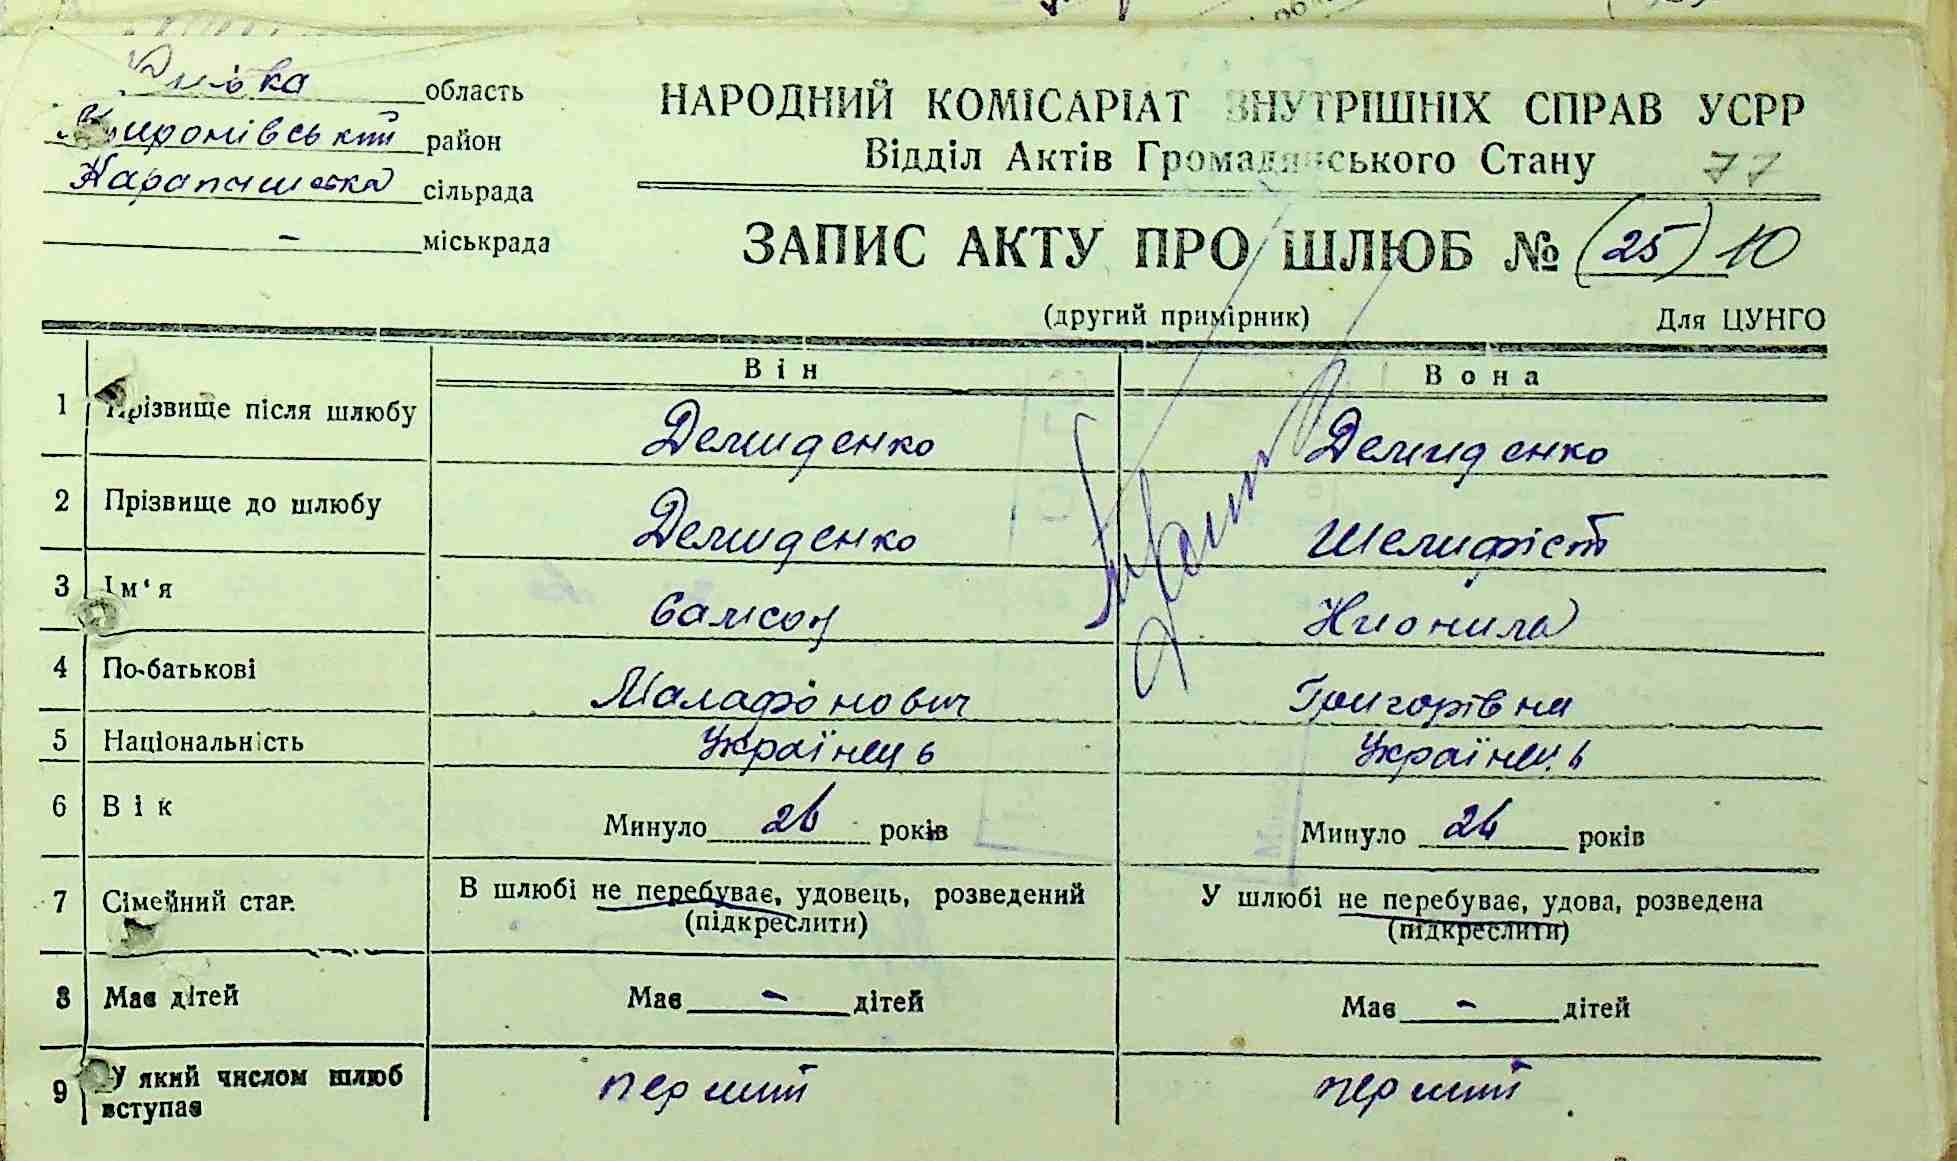 область
Миронівський район
Карапишська сільрада
- міськрада
НАРОДНИЙ КОМІСАРІАТ ВНУТРІШНІХ СПРАВ УСРР
Відділ Актів Громадянського Стану 77
ЗАПИС АКТУ ПРО ШЛЮБ № (25) 10
(другий примірник) Для ЦУНГО
Він Вона
1 Прізвище після шлюбу Демиденко Демиденко
2 Прізвище до шлюбу Демиденко Шелифіст
3 Ім‘я Самсон Нионила
4 По-батькові Малафонович Григорівна
5 Національність Українець Українець
6 Вік Минуло 26 років Минуло 26 років
7 Сімейний стан. В шлюбі не перебуває, удовець, розведений У шлюбі не перебуває, удова, розведена
(підкреслити) (підкреслити)
8 Має дітей Має - дітей Має - дітей
9 У який числом шлюб вступає перший перший